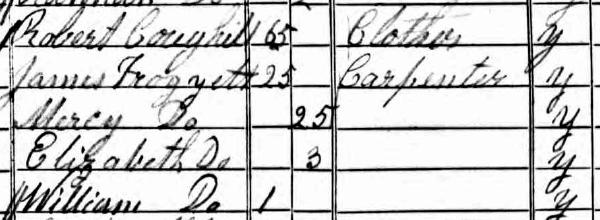 Robert Coughill 65 Clothier y
James Froggett 25 Carpenter y
Mercy Do 25 y
Elizabeth Do 3 y
William Do 1 y